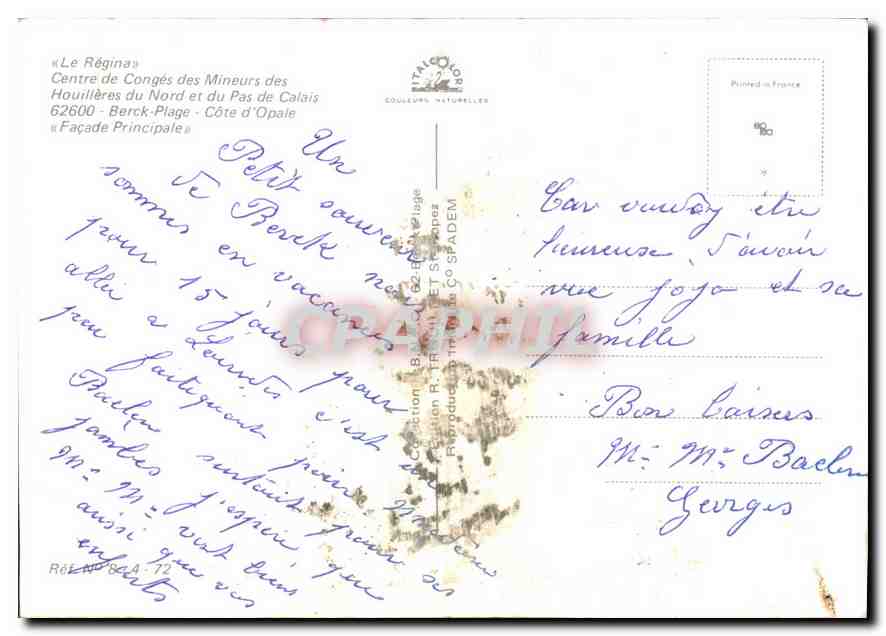 «Le Régina»
Centre de Congés des Mineurs des
Houillères du Nord et du Pas de Calais
62600 - Berck-Plage - Côte d'Opale
«Façade Principale»
ITALCOLOR
COULEURS NATURELLES
Printed in France
Un
Petit souvenir
de Berck nous
sommes en vacances
pour 15 jours pour
allér a Lourdes c'est un
peu faitiguant pour Madame
Baclen surtout pour ses
jambes j'espère que
Mr Me vont bien
aussi que vos
enfants
Collection Berck-Plage
Edition R. ET St
Reproduction Co SPADEM
CPAPHIL
Car vouday être
heureuse d'avoir
vue jojo et sa
famille
Bon baisers
Mr Me Baclen
Georges
Réf. N° 4 - 72